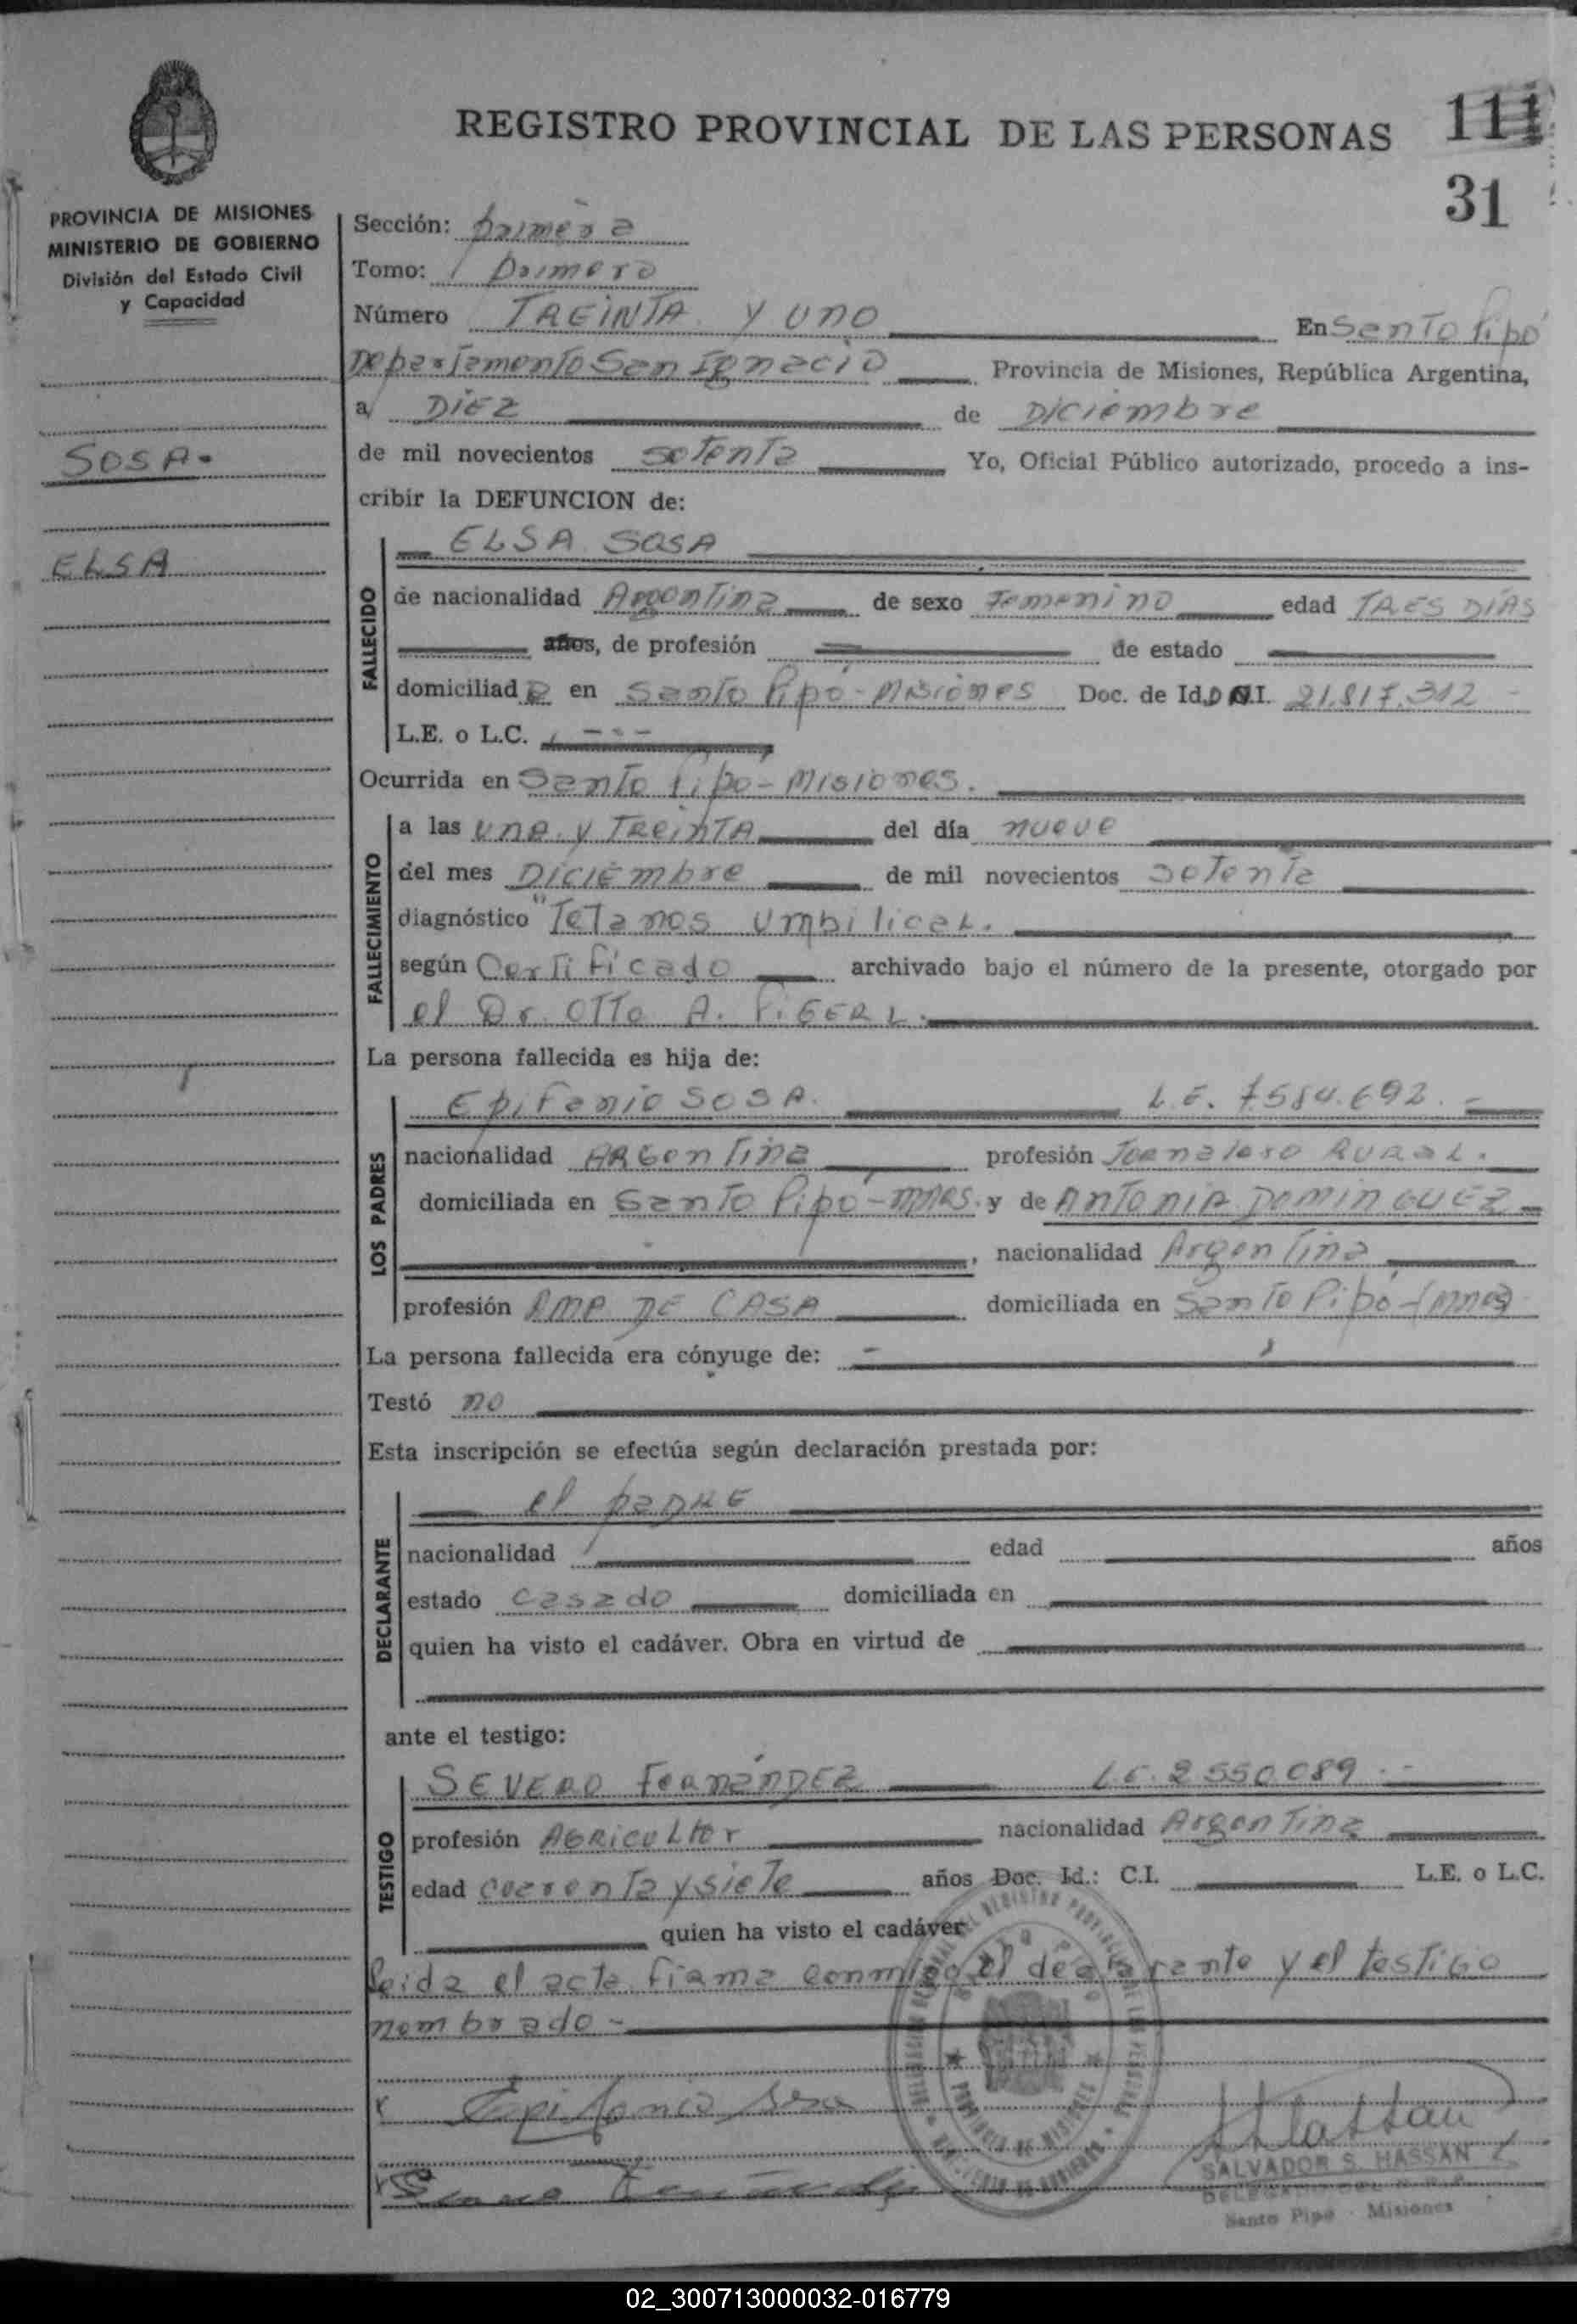 REGISTRO PROVINCIAL DE LAS PERSONAS
111
31
PROVINCIA DE MISIONES
MINISTERIO DE GOBIERNO
División del Estado Civil
y Capacidad
SOSA.
ELSA
Sección: primera
Tomo: primero
Número TREINTA Y UNO En Santo Pipó
Departamento San Ignacio Provincia de Misiones, República Argentina,
a DIEZ de Diciembre
de mil novecientos setenta Yo, Oficial Público autorizado, procedo a ins-
cribir la DEFUNCION de:
FALLECIDO
ELSA SOSA
de nacionalidad Argentina de sexo Femenino edad TRES DÍAS
años, de profesión de estado
domiciliada en Santo Pipó - Misiones Doc. de Id. D.N.I. 21.817.312 -
L.E. o L.C. ---
Ocurrida en Santo Pipó - Misiones.
FALLECIMIENTO
a las una y TREINTA del día nueve
del mes Diciembre de mil novecientos setenta
diagnóstico "Tetanos umbilical.
según Certificado archivado bajo el número de la presente, otorgado por
el Dr. OTTO A.
La persona fallecida es hija de:
LOS PADRES
Epifanio SOSA. L.E. 7.584.692. -
nacionalidad ARGentina profesión Jornalero RURAL.
domiciliada en Santo Pipó - MNES. y de ANTONIA DOMINGUEZ
, nacionalidad Argentina
profesión AMA DE CASA domiciliada en Santo Pipó - (MNES)
La persona fallecida era cónyuge de: -
Testó no
Esta inscripción se efectúa según declaración prestada por:
DECLARANTE
el PADRE
nacionalidad edad años
estado casado domiciliada en
quien ha visto el cadáver. Obra en virtud de
ante el testigo:
TESTIGO
SEVERO FERNÁNDEZ L.E. 2.550.089. -
profesión AGRICULTOR nacionalidad Argentina
edad cuarenta y siete años Doc. Id.: C.I. L.E. o L.C.
quien ha visto el cadáver
Leida el acta firma conmigo el declarante y el testigo
nombrado -
Epifanio Sosa
Hassan
SALVADOR S. HASSAN
Santo Pipó - Misiones
02_300713000032-016779